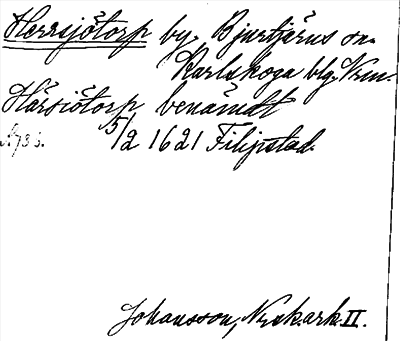 Herrsjötorp by, Bjurtjärns sn.
Karlskoga blg. Vrm.
Härsiötorp benämdt
5/2 1621 Filipstad.
Johansson, Nyek.ark. II.